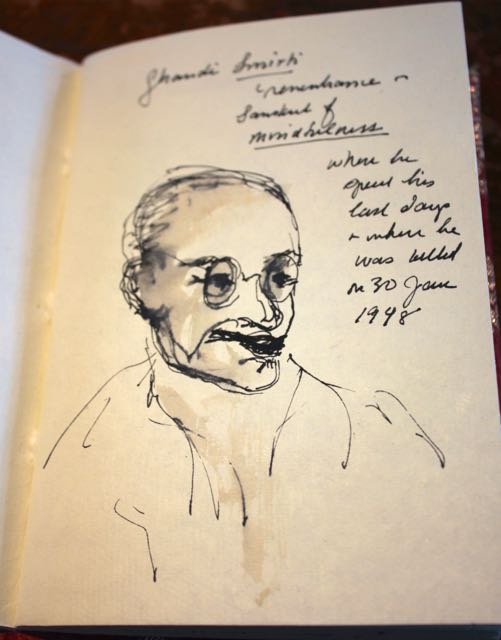 Ghandi Smirti
remembrance -
Sanskrit of
mindfulness
where he
spent his
last days
+ where he
was killed
on 30 Jan
1948